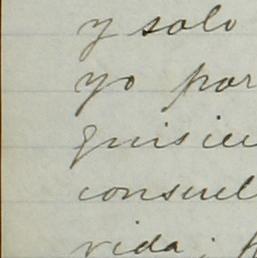 y solo
yo por
quisie
consuel
vida,